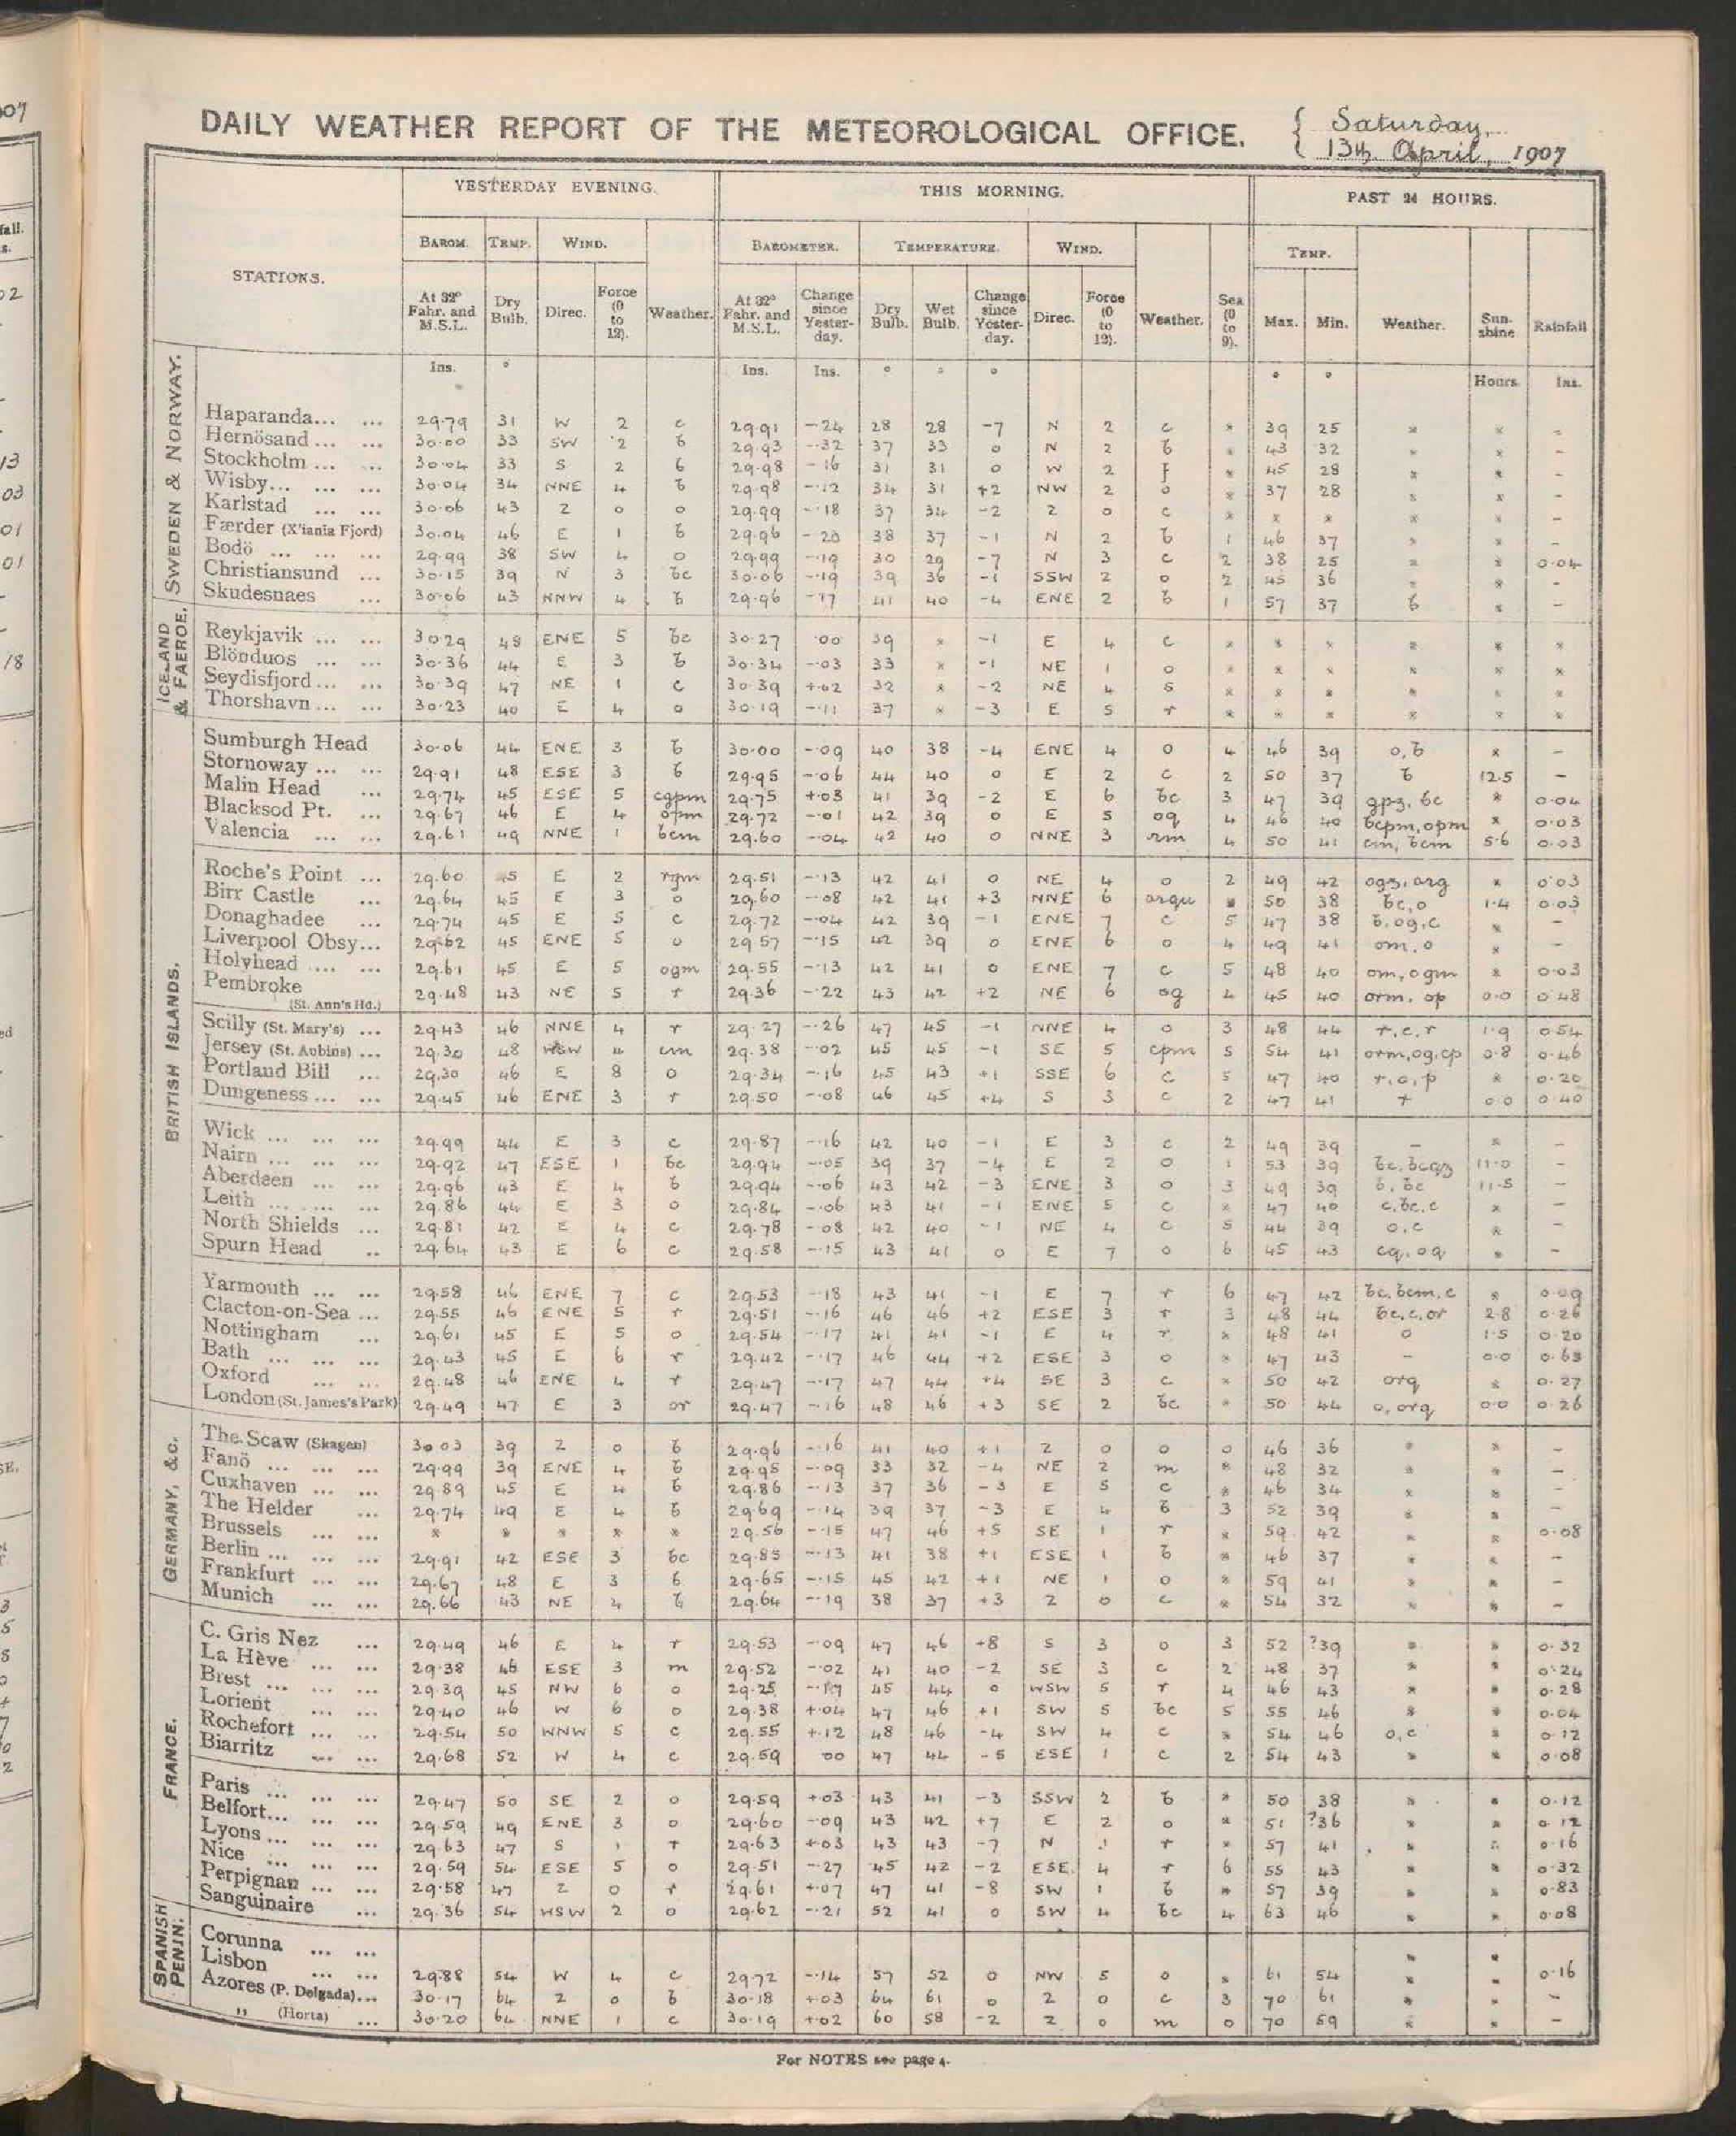 DAILY WEATHER REPORT OF THE METEOROLOGICAL OFFICE. { Saturday, 13th April, 1907
YESTERDAY EVENING. THIS MORNING. PAST 24 HOURS.
BAROM. TEMP. WIND. BAROMETER. TEMPERATURE. WIND. TEMP.
STATIONS. At 32° Fahr. and M.S.L. Dry Bulb. Direc. Force (0 to 12). Weather. At 32° Fahr. and M.S.L. Change since Yester-day. Dry Bulb. Wet Bulb. Change since Yester-day. Direc. Force (0 to 12). Weather. Sea (0 to 9). Max. Min. Weather. Sun-shine Rainfall
Ins. ° Ins. Ins. ° ° ° ° ° Hours Ins.
SWEDEN & NORWAY.
Haparanda... ... 29.79 31 W 2 c 29.91 -.24 28 28 -7 N 2 c * 39 25 * * -
Hernösand ... ... 30.00 33 SW 2 b 29.93 -.32 37 33 0 N 2 b * 43 32 * * -
Stockholm ... ... 30.04 33 S 2 b 29.98 -.16 31 31 0 W 2 f * 45 28 * * -
Wisby... ... ... 30.04 34 NNE 4 b 29.98 -.12 34 31 +2 NW 2 o * 37 28 * * -
Karlstad ... ... 30.06 43 Z 0 o 29.99 -.18 37 34 -2 Z 0 c * * * * * -
Færder (X'iania Fjord) 30.04 46 E 1 b 29.96 -.20 38 37 -1 N 2 b 1 46 37 * * -
Bodö ... ... ... 29.99 38 SW 4 o 29.99 -.19 30 29 -7 N 3 c 2 38 25 * * 0.04
Christiansund ... 30.15 39 N 3 bc 30.06 -.19 39 36 -1 SSW 2 o 2 45 36 * * -
Skudesnaes ... 30.06 43 NNW 4 b 29.96 -.17 41 40 -4 ENE 2 b 1 57 37 b * -
ICELAND & FAEROE.
Reykjavik ... ... 30.29 48 ENE 5 bc 30.27 .00 39 * -1 E 4 c * * * * * *
Blönduos ... ... 30.36 44 E 3 b 30.34 -.03 33 * -1 NE 1 o * * * * * *
Seydisfjord ... ... 30.39 47 NE 1 c 30.39 +.02 32 * -2 NE 4 s * * * * * *
Thorshavn ... ... 30.23 40 E 4 o 30.19 -.11 37 * -3 E 5 r * * * * * *
BRITISH ISLANDS.
Sumburgh Head 30.06 44 ENE 3 b 30.00 -.09 40 38 -4 ENE 4 o 4 46 39 o,b * -
Stornoway ... ... 29.91 48 ESE 3 b 29.95 -.06 44 40 0 E 2 c 2 50 37 b 12.5 -
Malin Head ... 29.74 45 ESE 5 cqpm 29.75 +.03 41 39 -2 E 6 bc 3 47 39 qpz, bc * 0.04
Blacksod Pt. ... 29.67 46 E 4 opm 29.72 -.01 42 39 0 E 5 oq 4 46 40 bcpm, opm * 0.03
Valencia ... ... 29.61 49 NNE 1 bcm 29.60 -.04 42 40 0 NNE 3 rm 4 50 41 cm, bcm 5.6 0.03
Roche's Point ... 29.60 45 E 2 rqm 29.51 -.13 42 41 0 NE 4 o 2 49 42 ogz, org * 0.03
Birr Castle ... 29.64 45 E 3 o 29.60 -.08 42 41 +3 NNE 6 orqu * 50 38 bc,o 1.4 0.03
Donaghadee ... 29.74 45 E 5 c 29.72 -.04 42 39 -1 ENE 7 c 5 47 38 b,og,c * -
Liverpool Obsy... 29.62 45 ENE 5 o 29.57 -.15 42 39 0 ENE 6 o 4 49 41 om, o * -
Holyhead ... ... 29.61 45 E 5 ogm 29.55 -.13 42 41 0 ENE 7 c 5 48 40 om, ogm * 0.03
Pembroke (St. Ann's Hd.) 29.48 43 NE 5 r 29.36 -.22 43 42 +2 NE 6 og 4 45 40 orm, op 0.0 0.48
Scilly (St. Mary's) ... 29.43 46 NNE 4 r 29.27 -.26 47 45 -1 NNE 4 o 3 48 44 r,c,r 1.9 0.54
Jersey (St. Aubins) ... 29.30 48 WSW 4 cm 29.38 -.02 45 45 -1 SE 5 cpm 5 54 41 orm,og,cp 0.8 0.46
Portland Bill ... 29.30 46 E 8 o 29.34 -.16 45 43 +1 SSE 6 c 5 47 40 r,o,p * 0.20
Dungeness ... ... 29.45 46 ENE 3 r 29.50 -.08 46 45 +4 S 3 c 2 47 41 r 0.0 0.40
Wick ... ... ... 29.99 44 E 3 c 29.87 -.16 42 40 -1 E 3 c 2 49 39 - * -
Nairn ... ... ... 29.92 47 ESE 1 bc 29.94 -.05 39 37 -4 E 2 o 1 53 39 bc, bcqz 11.0 -
Aberdeen ... ... 29.96 43 E 4 b 29.94 -.06 43 42 -3 ENE 3 o 3 49 39 b, bc 11.5 -
Leith ... ... ... 29.86 44 E 3 o 29.84 -.06 43 41 -1 ENE 5 c * 47 40 c,bc,c * -
North Shields ... 29.81 42 E 4 c 29.78 -.08 42 40 -1 NE 4 c 5 44 39 o,c * -
Spurn Head .. 29.64 43 E 6 c 29.58 -.15 43 41 0 E 7 o 6 45 43 cq, oq * -
Yarmouth ... ... 29.58 46 ENE 7 c 29.53 -.18 43 41 -1 E 7 r 6 47 42 bc, bcm, c * 0.09
Clacton-on-Sea ... 29.55 46 ENE 5 r 29.51 -.16 46 46 +2 ESE 3 r 3 48 44 bc,c,or 2.8 0.26
Nottingham ... 29.61 45 E 5 o 29.54 -.17 41 41 -1 E 4 r * 48 41 o 1.5 0.20
Bath ... ... ... 29.43 45 E 6 r 29.42 -.17 46 44 +2 ESE 3 o * 47 43 - 0.0 0.63
Oxford ... ... 29.48 46 ENE 4 r 29.47 -.17 47 44 +4 SE 3 c * 50 42 orq * 0.27
London (St. James's Park) 29.49 47 E 3 or 29.47 -.16 48 46 +3 SE 2 bc * 50 44 o, orq 0.0 0.26
GERMANY, &c.
The Scaw (Skagen) 30.03 39 Z 0 b 29.96 -.16 41 40 +1 Z 0 o 0 46 36 * * -
Fanö ... ... ... 29.99 39 ENE 4 b 29.95 -.09 33 32 -4 NE 2 m * 48 32 * * -
Cuxhaven ... ... 29.89 45 E 4 b 29.86 -.13 37 36 -3 E 5 c * 46 34 * * -
The Helder ... 29.74 49 E 4 b 29.69 -.14 39 37 -3 E 4 b 3 52 39 * * -
Brussels ... ... * * * * * 29.56 -.15 47 46 +5 SE 1 r * 59 42 * * 0.08
Berlin ... ... ... 29.91 42 ESE 3 bc 29.85 -.13 41 38 +1 ESE 1 b * 46 37 * * -
Frankfurt ... ... 29.67 48 E 3 b 29.65 -.15 45 42 +1 NE 1 o * 59 41 * * -
Munich ... ... 29.66 43 NE 4 b 29.64 -.19 38 37 +3 Z 0 c * 54 32 * * -
FRANCE.
C. Gris Nez ... 29.49 46 E 4 r 29.53 -.09 47 46 +8 S 3 o 3 52 ?39 * * 0.32
La Hève ... ... 29.38 46 ESE 3 m 29.52 -.02 41 40 -2 SE 3 c 2 48 37 * * 0.24
Brest ... ... ... 29.39 45 NW 6 o 29.25 -.19 45 44 0 WSW 5 r 4 46 43 * * 0.28
Lorient ... ... 29.40 46 W 6 o 29.38 +.04 47 46 +1 SW 5 bc 5 55 46 * * 0.04
Rochefort ... ... 29.54 50 WNW 5 c 29.55 +.12 48 46 -4 SW 4 c * 54 46 o,c * 0.12
Biarritz ... ... 29.68 52 W 4 c 29.59 .00 47 44 -5 ESE 1 c 2 54 43 * * 0.08
Paris ... ... ... 29.47 50 SE 2 o 29.59 +.03 43 41 -3 SSW 2 b * 50 38 * * 0.12
Belfort... ... ... 29.59 49 ENE 3 o 29.60 -.09 43 42 +7 E 2 o * 51 ?36 * * 0.12
Lyons ... ... ... 29.63 47 S 1 r 29.63 +.03 43 43 -7 N 1 r * 57 41 * * 0.16
Nice ... ... ... 29.59 54 ESE 5 o 29.51 -.27 45 42 -2 ESE 4 r 6 55 43 * * 0.32
Perpignan ... ... 29.58 47 Z 0 r 29.61 +.07 47 41 -8 SW 1 b * 57 39 * * 0.83
Sanguinaire ... 29.36 54 WSW 2 o 29.62 -.21 52 41 0 SW 4 bc 4 63 46 * * 0.08
SPANISH PENIN.
Corunna ... ... * *
Lisbon ... ... 29.88 54 W 4 c 29.72 -.14 57 52 0 NW 5 o * 61 54 * * 0.16
Azores (P. Delgada)... 30.17 64 Z 0 b 30.18 +.03 64 61 0 Z 0 c 3 70 61 * * -
" (Horta) ... 30.20 64 NNE 1 c 30.19 +.02 60 58 -2 Z 0 m 0 70 59 * * -
For NOTES see page 4.